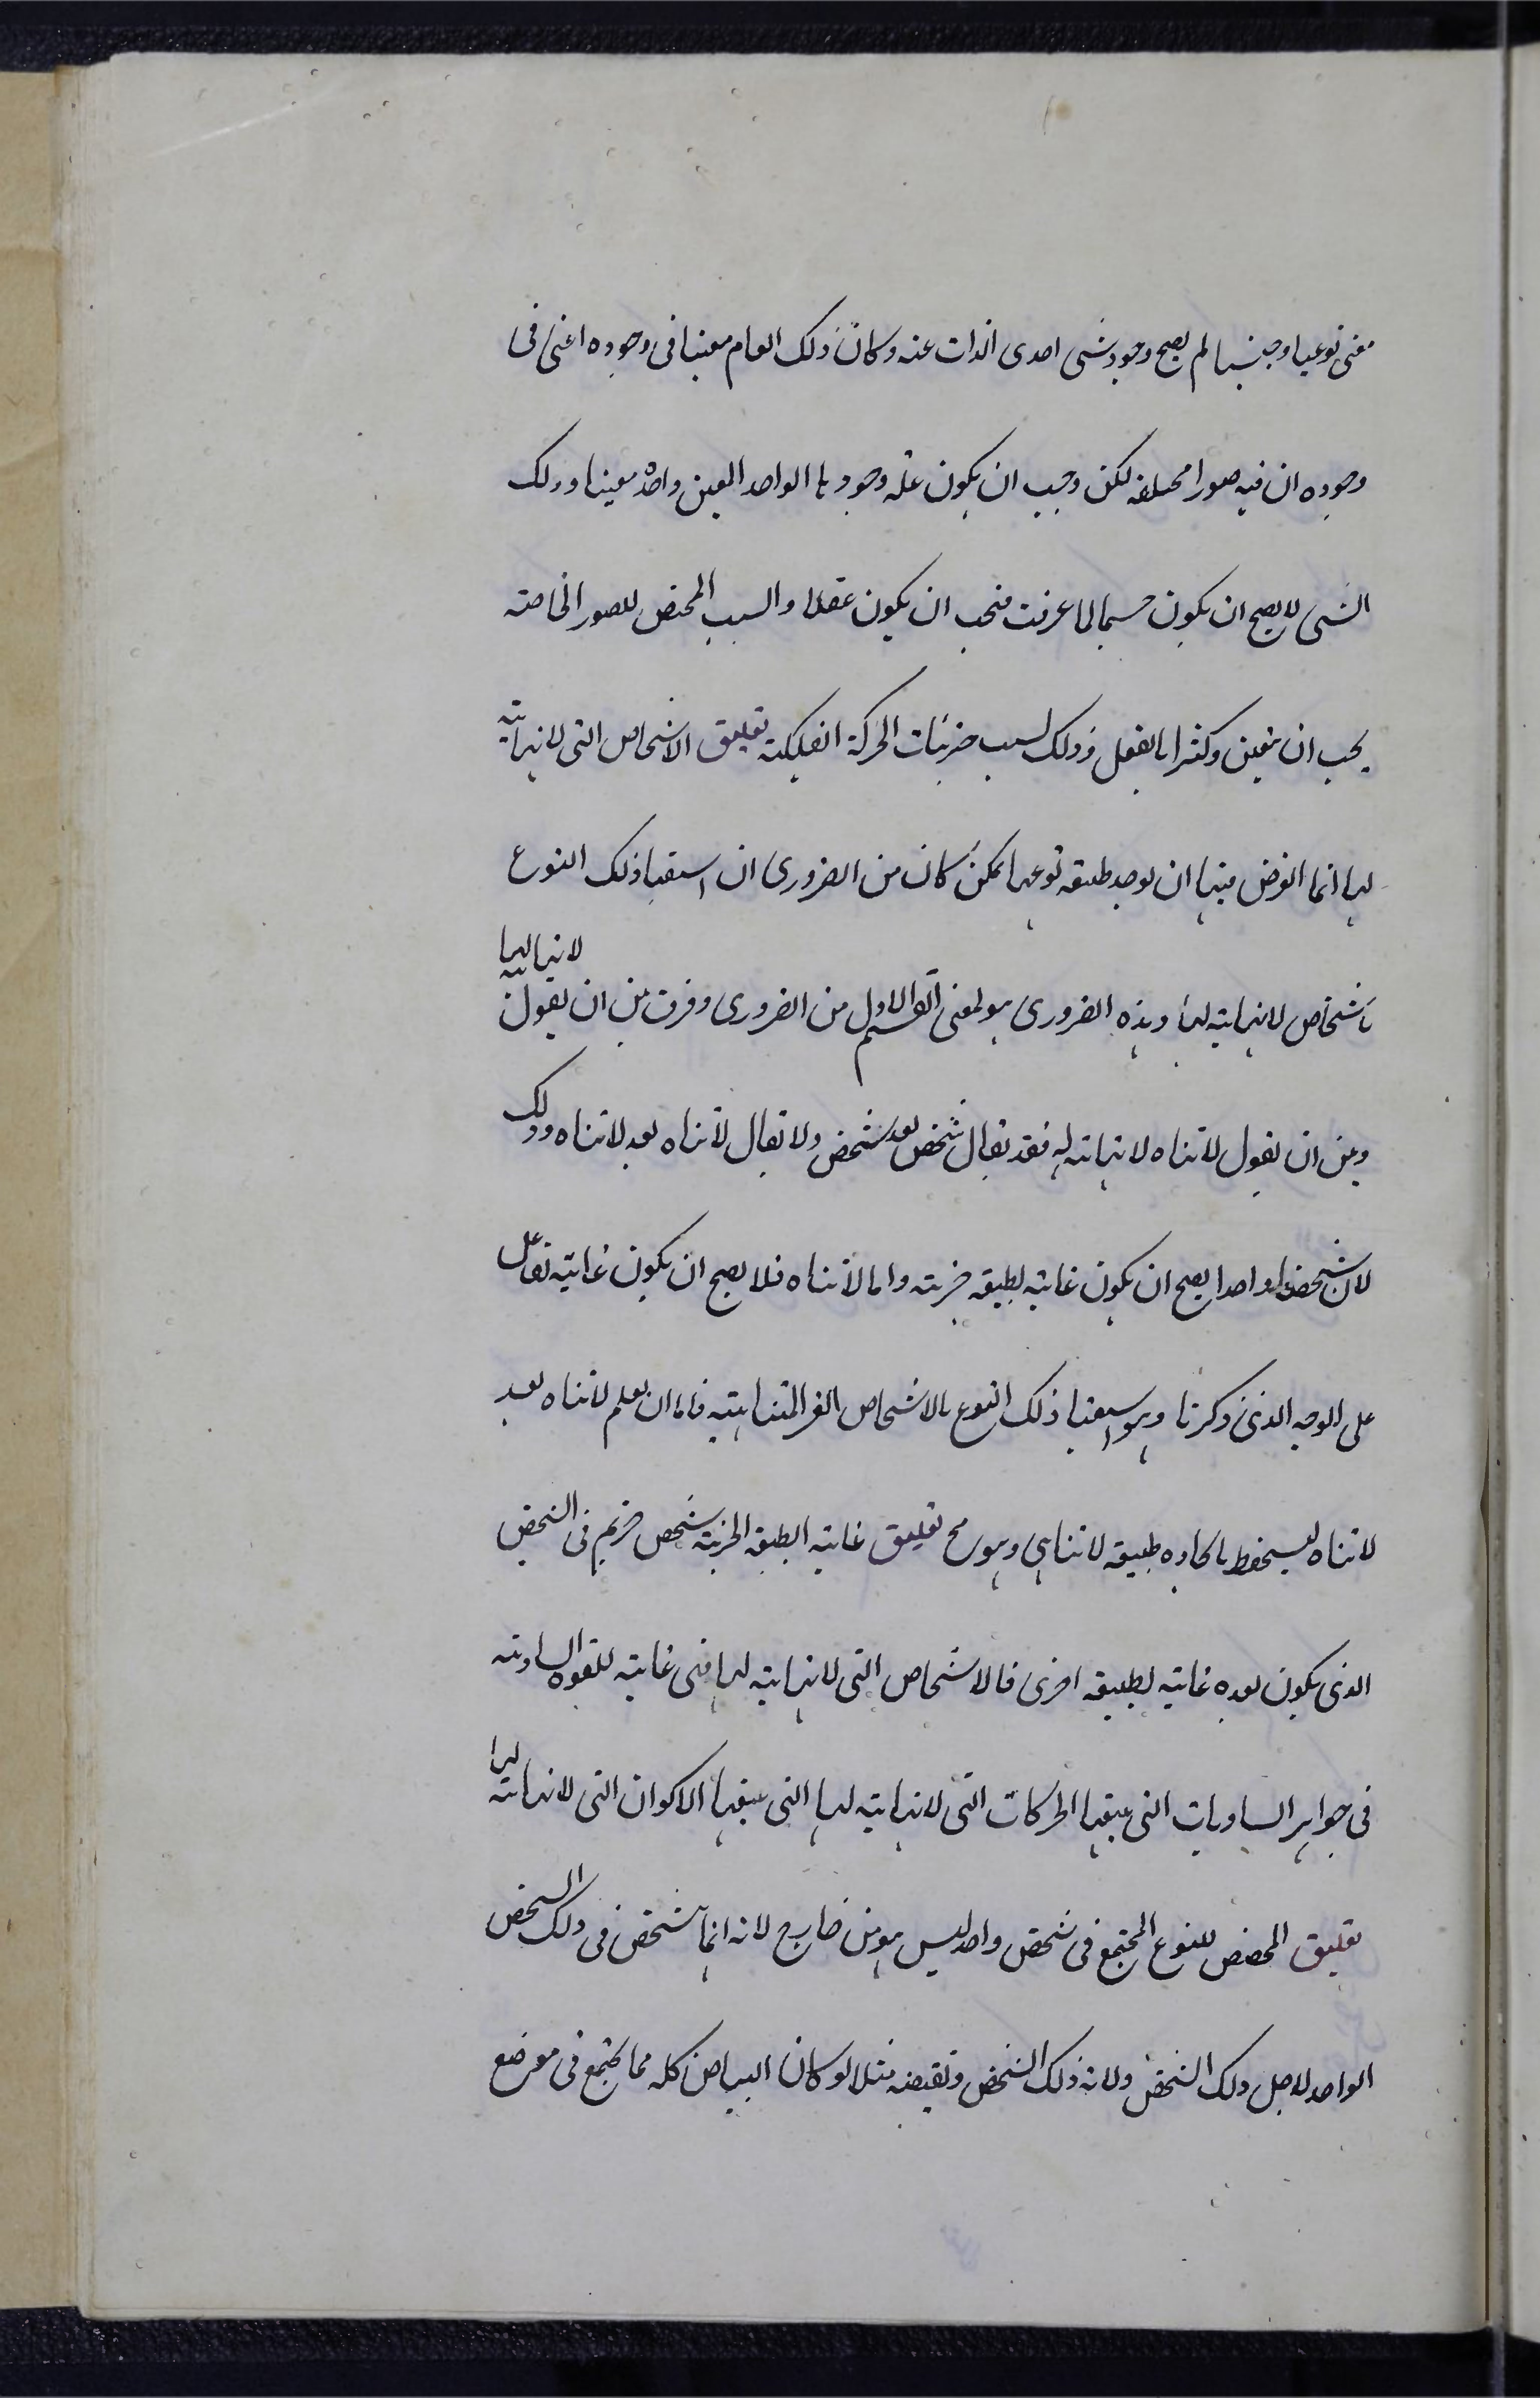 معنى نوعيا او جنسيا لم يصح وجود شى احدى الذات عنه وكان ذلك العام معينا فى وجوده اعنى فى
وجوده ان فيه صورا مختلفه لكن وجب ان يكون علة وجودها الواحد المعين واحدا معينا وذلك
الشى لا يصح ان يكون جسما لما عرفت فيجب ان يكون عقلا والسبب المخصص للصور الخاصة
يجب ان يتعين وكثيرا بالفعل وذلك لسبب جزئيات الحركة الفلكية تعليق الاشخاص التى لا نهاية
لها انما الغرض فيها ان يوجد طبيعة نوعها لكن كان من الضرورى ان استبقا ذلك النوع
باشخاص لا نهاية لها وهذه الضرورى هو لمعنى القسم الاول من الضرورى وفرق بين ان يقول لا نهاية لها
وبين ان يقول لا تناه لا نهاية له فقد يقال شخص بعد شخص ولا يقال لا تناه بعد لا تناه وذلك
لان شخصا واحدا يصح ان يكون غاية لطبيعة جزية واما لا تناه فلا يصح ان يكون غاية
على الوجه الذى ذكرنا وهو استبقا ذلك النوع بالاشخاص الغير المتناهية فاما ان يعلم لا تناه بعد
لا تناه ليستحفظ باتحاده طبيعة لا تناهى وهو مح تعليق غاية الطبيعة الجزية شخص جزيى فى الشخص
الذى يكون بعده غاية لطبيعة اخرى فالاشخاص التى لا نهاية لها فهى غاية للقوه السماوية
فى جواهر السماويات التى يتبعها الحركات التى لا نهاية لها التى يتبعها الاكوان التى لا نهاية لها
تعليق المخصص للنوع المجتمع فى شخص واحد ليس هو من خارج لانه انما تشخص فى ذلك الشخص
الواحد لاجل ذلك الشخص ولانه ذلك الشخص ونقيضه مثلا لو كان البياض كله مما يجتمع فى موضع